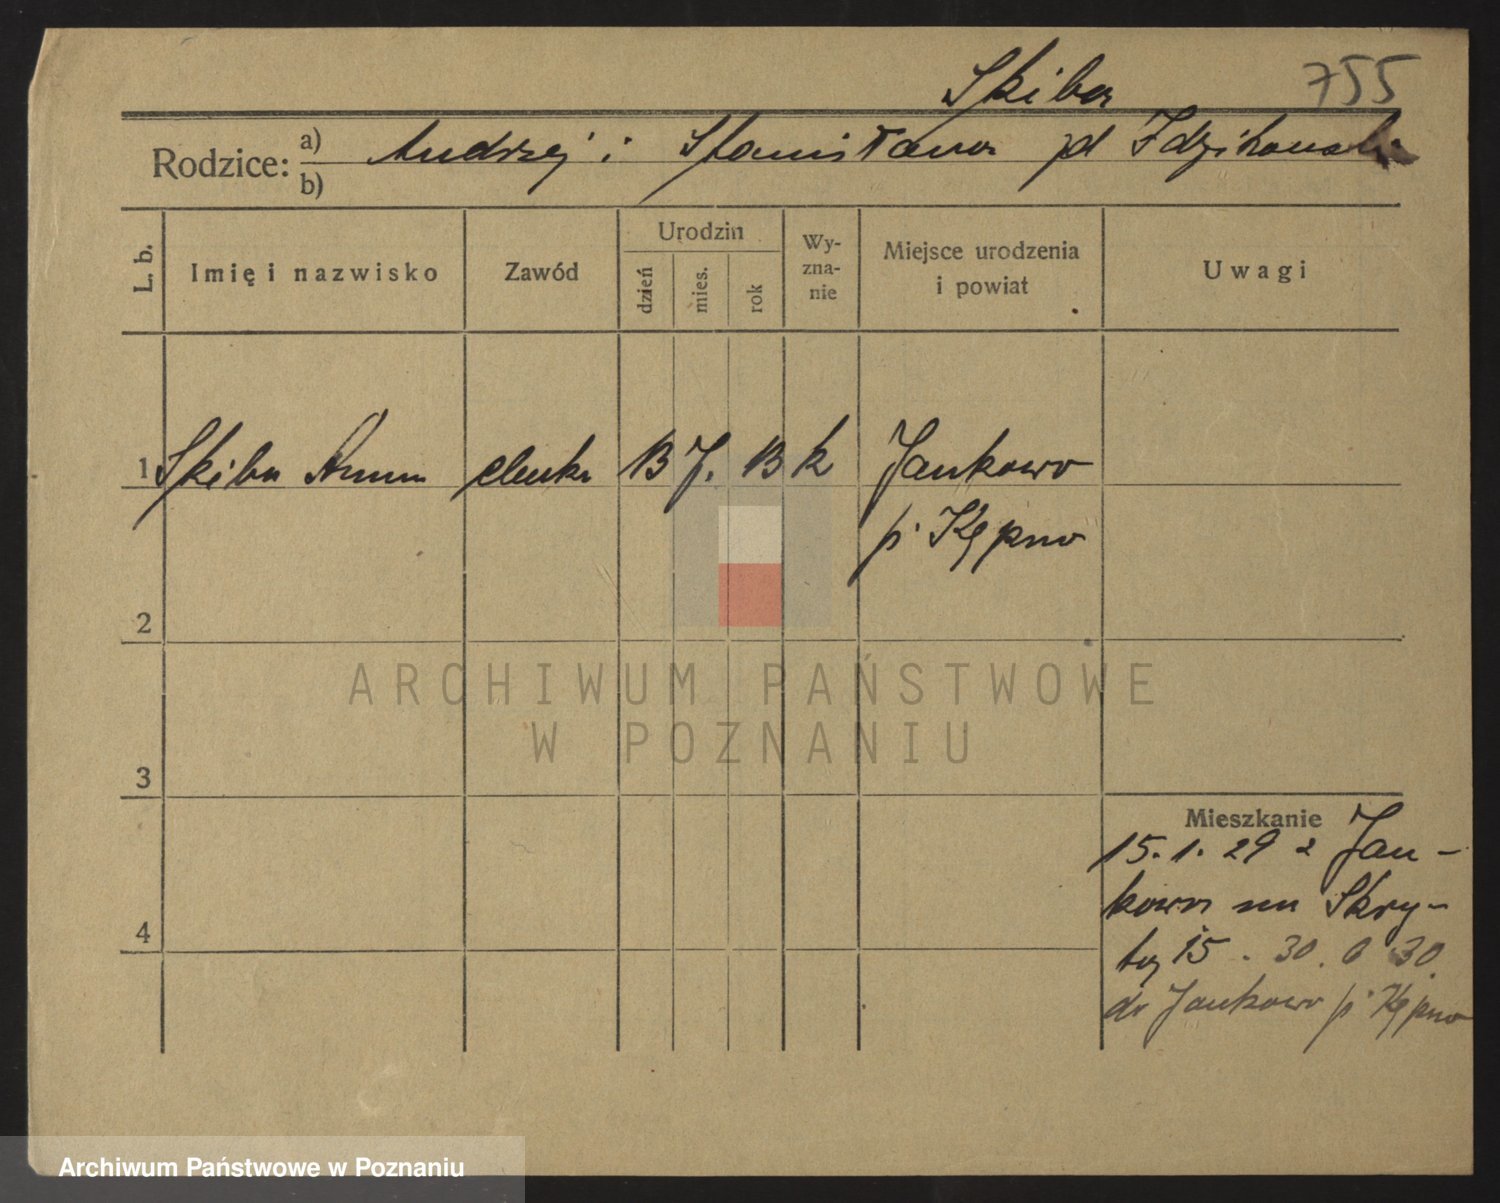 Skiba 755
Rodzice: a) Andrzej i Stanisława zd Idzikowska
b)
L. b. Imię i nazwisko Zawód Urodzin dzień mies. rok Wy-zna-nie Miejsce urodzenia i powiat Uwagi
1 Skiba Anna 13 7. 13 k Jankowo
p. Kępno
2
3
Mieszkanie
15. 1. 29 z Jan-
kowa na Skry-
tą 15 . 30. 6 30.
4
do Jankowo p. Kępno
ARCHIWUM PAŃSTWOWE
W POZNANIU
Archiwum Państwowe w Poznaniu